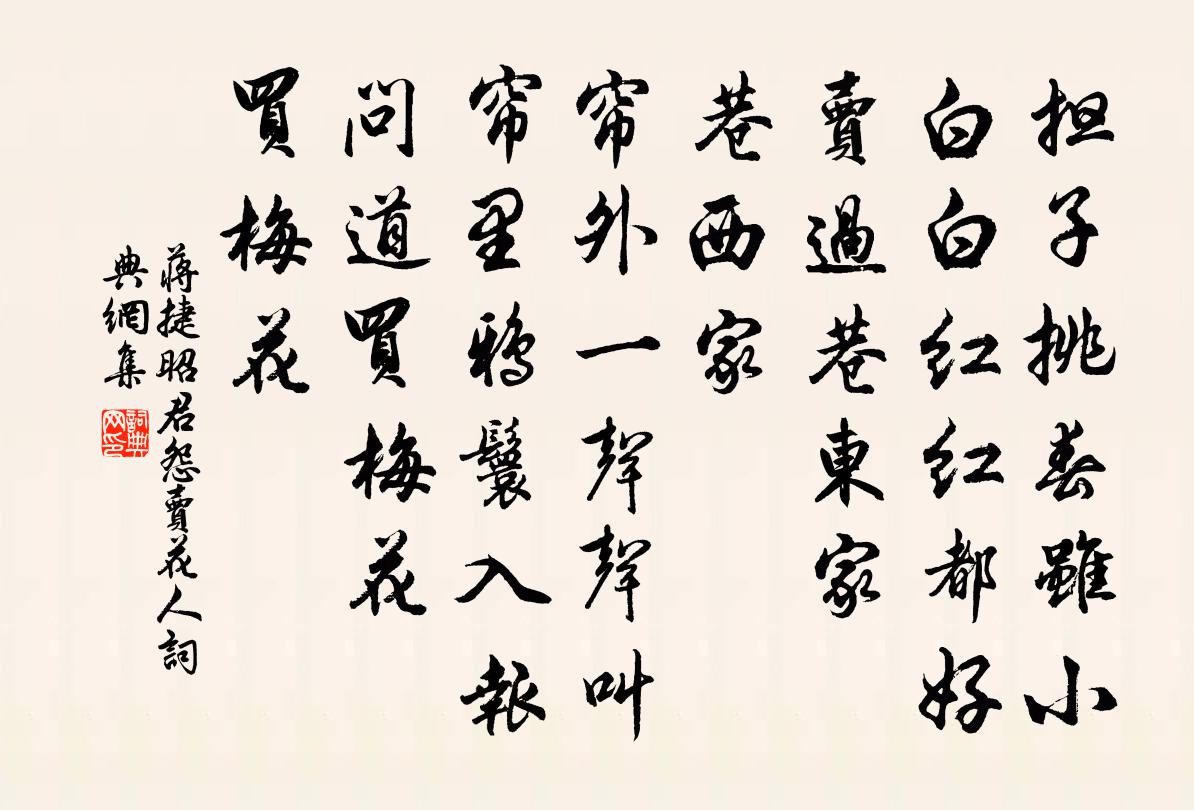 担子挑春雖小
白白红红都好
賣過巷東家
巷西家
帘外一聲聲叫
帘里鴉鬟入報
問道買梅花
買梅花
蔣捷昭君怨賣花人詞
典網集
詞典网印